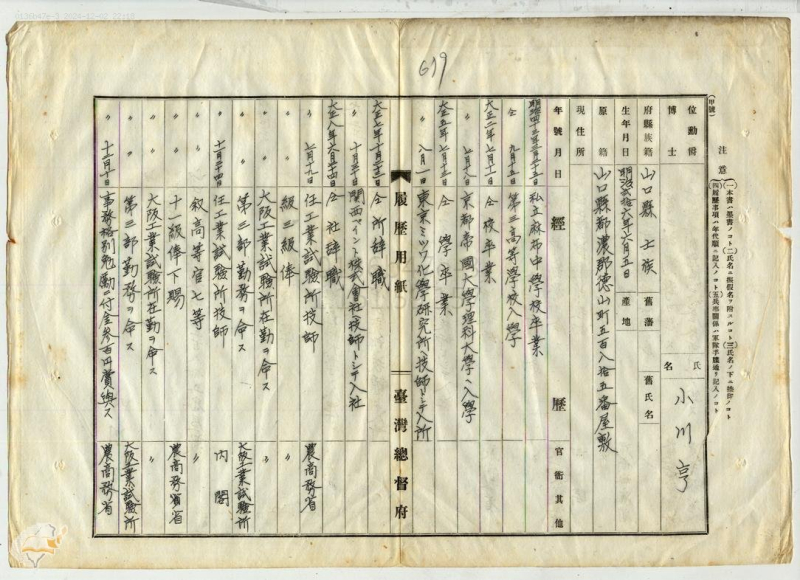 619
(甲號)
注意
(一)本書ハ墨書ノコト(二)氏名ニ振假名ヲ附スルコト(三)氏名ノ下ニ捺印ノコト
(四)經歷事項ハ年代順ニ記入ノコト(五)兵事關係ハ軍隊手牒通リ記入ノコト
位勳爵
博士
氏名
小川亨
府縣族籍
山口縣士族
舊藩
舊氏名
生年月日
明治貳拾六年六月五日
產地
原籍
山口縣都濃郡德山町五百八拾五番屋敷
現住所
年號月日
經歷
官衙其他
明治四十三年三月二十三日 私立麻布中學校卒業
仝 九月十五日 第三高等學校入學
大正二年七月十一日 仝校卒業
〃 七月 京都帝國大學理科大學ヘ入學
大正五年七月十三日 仝學卒業
〃 八月一日 東京ミツワ化學研究所ヘ技師トシテ入所
履歷用紙
臺灣總督府
大正七年十月二十三日 仝所辭職
〃 十月二十日 關西ペイント株式會社ヘ技師トシテ入社
大正八年六月二十四日 仝社辭職
〃 七月十九日 任工業試驗所技師 農商務省
〃 〃 級三級俸 〃
〃 〃 大阪工業試驗所在勤ヲ命ス 〃
〃 〃 第三部勤務ヲ命ス 大阪工業試驗所
〃 十二月二十四日 任工業試驗所技師 內閣
〃 〃 叙高等官七等 〃
〃 〃 十一級俸下賜 農商務省
〃 〃 大阪工業試驗所在勤ヲ命ス 〃
〃 〃 第三部勤務ヲ命ス 大阪工業試驗所
〃 事務格別勉勵ニ付金參百円賞與ス 農商務省